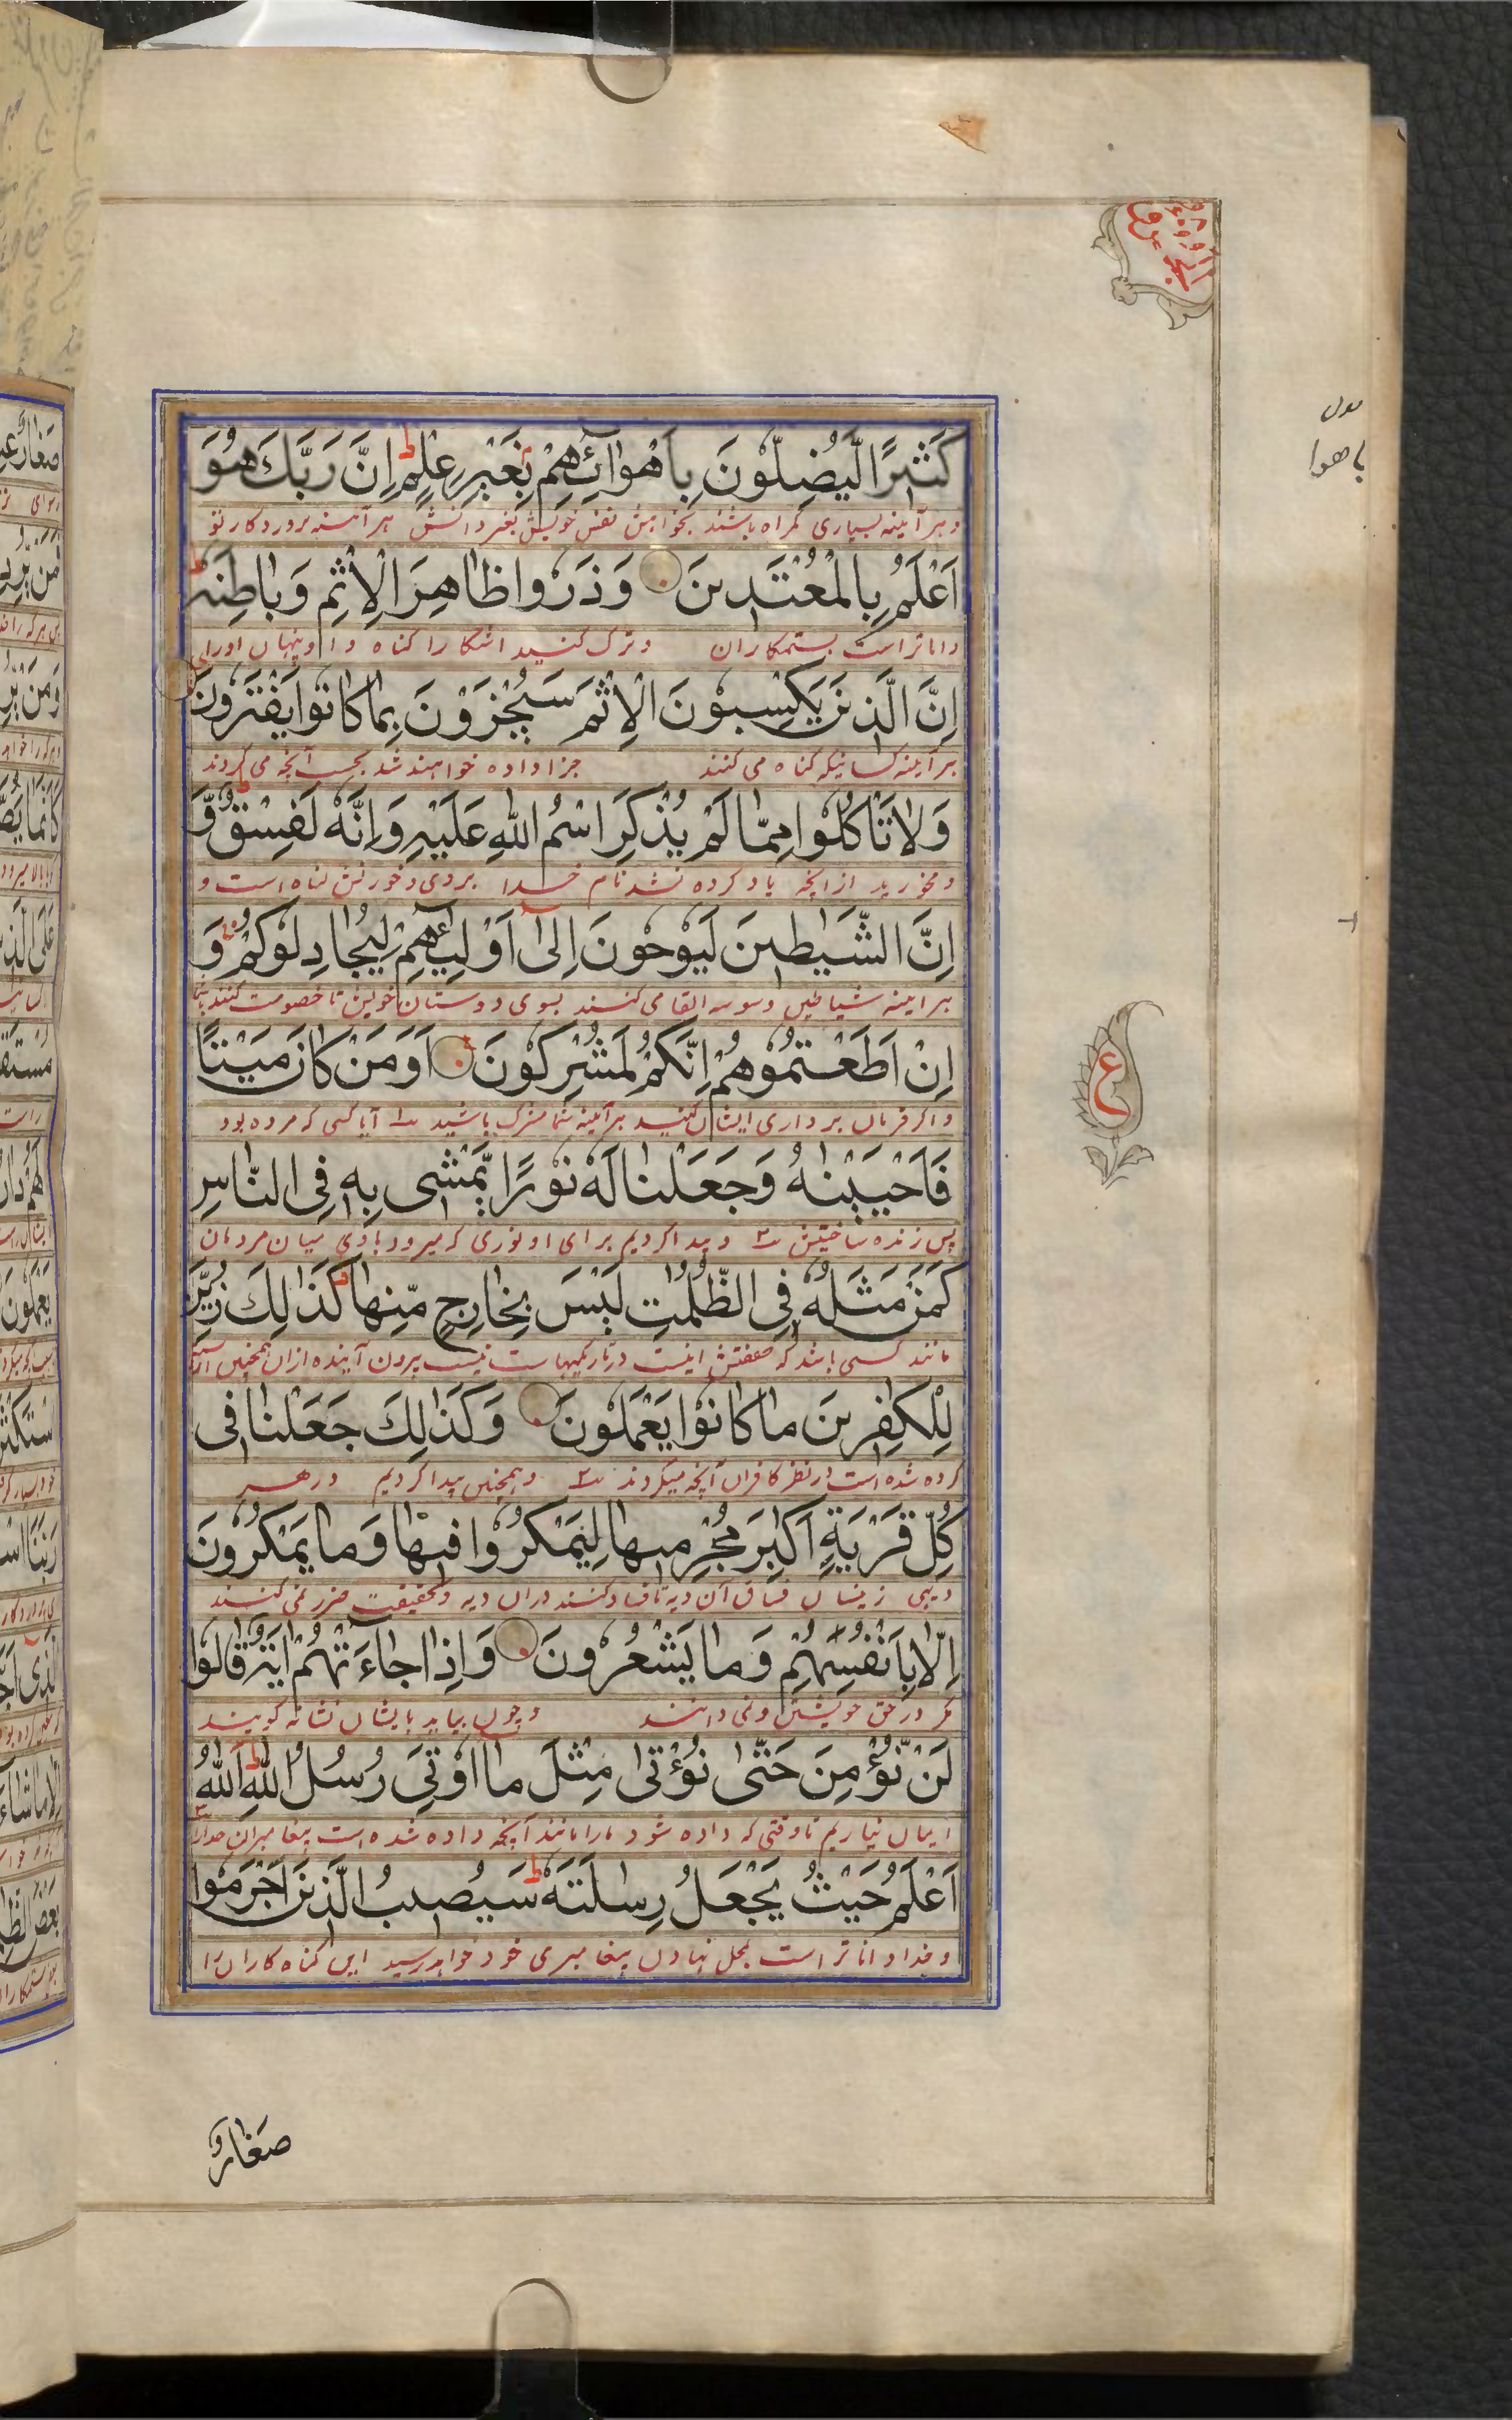 كَثِيرًا لَّيُضِلُّونَ بِاَهْوَائِهِمْ بِغَيْرِ عِلْمٍ ط اِنَّ رَبَّكَ هُوَ
و هر آیینه بسیاری گمراه باشند بخواهش نفس خویش بغیر دانش هر آیینه پروردکار تو
اَعْلَمُ بِالْمُعْتَدِينَ وَذَرُوا ظَاهِرَ الْاِثْمِ وَبَاطِنَهُ ط
دانا تر است بستمکاران و ترک کنید اشکارا کناه را و پنهان اورا
اِنَّ الَّذِينَ يَكْسِبُونَ الْاِثْمَ سَيُجْزَوْنَ بِمَا كَانُوا يَقْتَرِفُونَ
هر آیینه کسانیکه کناه می کنند جزا داده خواهند شد بحسب آنچه می کردند
وَلَا تَاْكُلُوا مِمَّا لَمْ يُذْكَرِ اسْمُ اللهِ عَلَيْهِ وَاِنَّهُ لَفِسْقٌ ط وَّ
و مخورید از انچه یاد کرده نشد نام خدا بر وی و خوردنش کناه است و
اِنَّ الشَّيٰطِينَ لَيُوحُونَ اِلٰى اَوْلِيٰٓئِهِمْ لِيُجَادِلُوكُمْ وَ
هر ایینه شیاطین وسوسه القا می کنند بسوی دوستان خویش تا خصومت کنند باشما
اِنْ اَطَعْتُمُوهُمْ اِنَّكُمْ لَمُشْرِكُونَ اَوَمَنْ كَانَ مَيْتًا
و اکر فرمان برداری ایشان کنید هر آیینه شما مشرک باشید آیا کسی که مرده بود
فَاَحْيَيْنٰهُ وَجَعَلْنَا لَهُ نُورًا يَّمْشِى بِهِ فِى النَّاسِ
پس زنده ساختیش و پیدا کردیم برای او نوری که میرود با وی میان مردمان
كَمَنْ مَثَلُهُ فِى الظُّلُمٰتِ لَيْسَ بِخَارِجٍ مِّنْهَا كَذَالِكَ زُيِّنَ
مانند کسی باشد که صفتش اینست در تاریکیهاست نیست بیرون آینده ازان همچنین اراسته
لِلْكٰفِرِينَ مَا كَانُوا يَعْمَلُونَ وَكَذَالِكَ جَعَلْنَا فِى
کرده شده است در نظر کافران آنچه میکردند و همچنین پیدا کردیم در هر
كُلِّ قَرْيَةٍ اَكٰبِرَ مُجْرِمِيهَا لِيَمْكُرُوا فِيهَا وَمَا يَمْكُرُونَ
دیهی فساق آن دیه تا فساد کنند دران دیه و بحقیقت ضرر نمی کنند
اِلَّا بِاَنْفُسِهِمْ وَمَا يَشْعُرُونَ وَاِذَا جَاءَتْهُمْ اٰيَةٌ قَالُوا
مکر در حق خویشتن و نمی دانند و چون بیاید بایشان نشانه کویند
لَنْ نُّؤْمِنَ حَتّٰى نُؤْتٰى مِثْلَ مَا اُوْتِىَ رُسُلُ اللهِ ط اَللهُ
ایمان نیاریم تا وقتی که داده شود مارا مانند آنچه داده شده است پیغامبران خدارا
اَعْلَمُ حَيْثُ يَجْعَلُ رِسٰلَتَهُ ط سَيُصِيبُ الَّذِينَ اَجْرَمُوا
و خدا دانا تر است بمحل نهادن پیغامبری خود خواهد رسید این کناه کاران را
صَغَارٌ
ع
باهوا